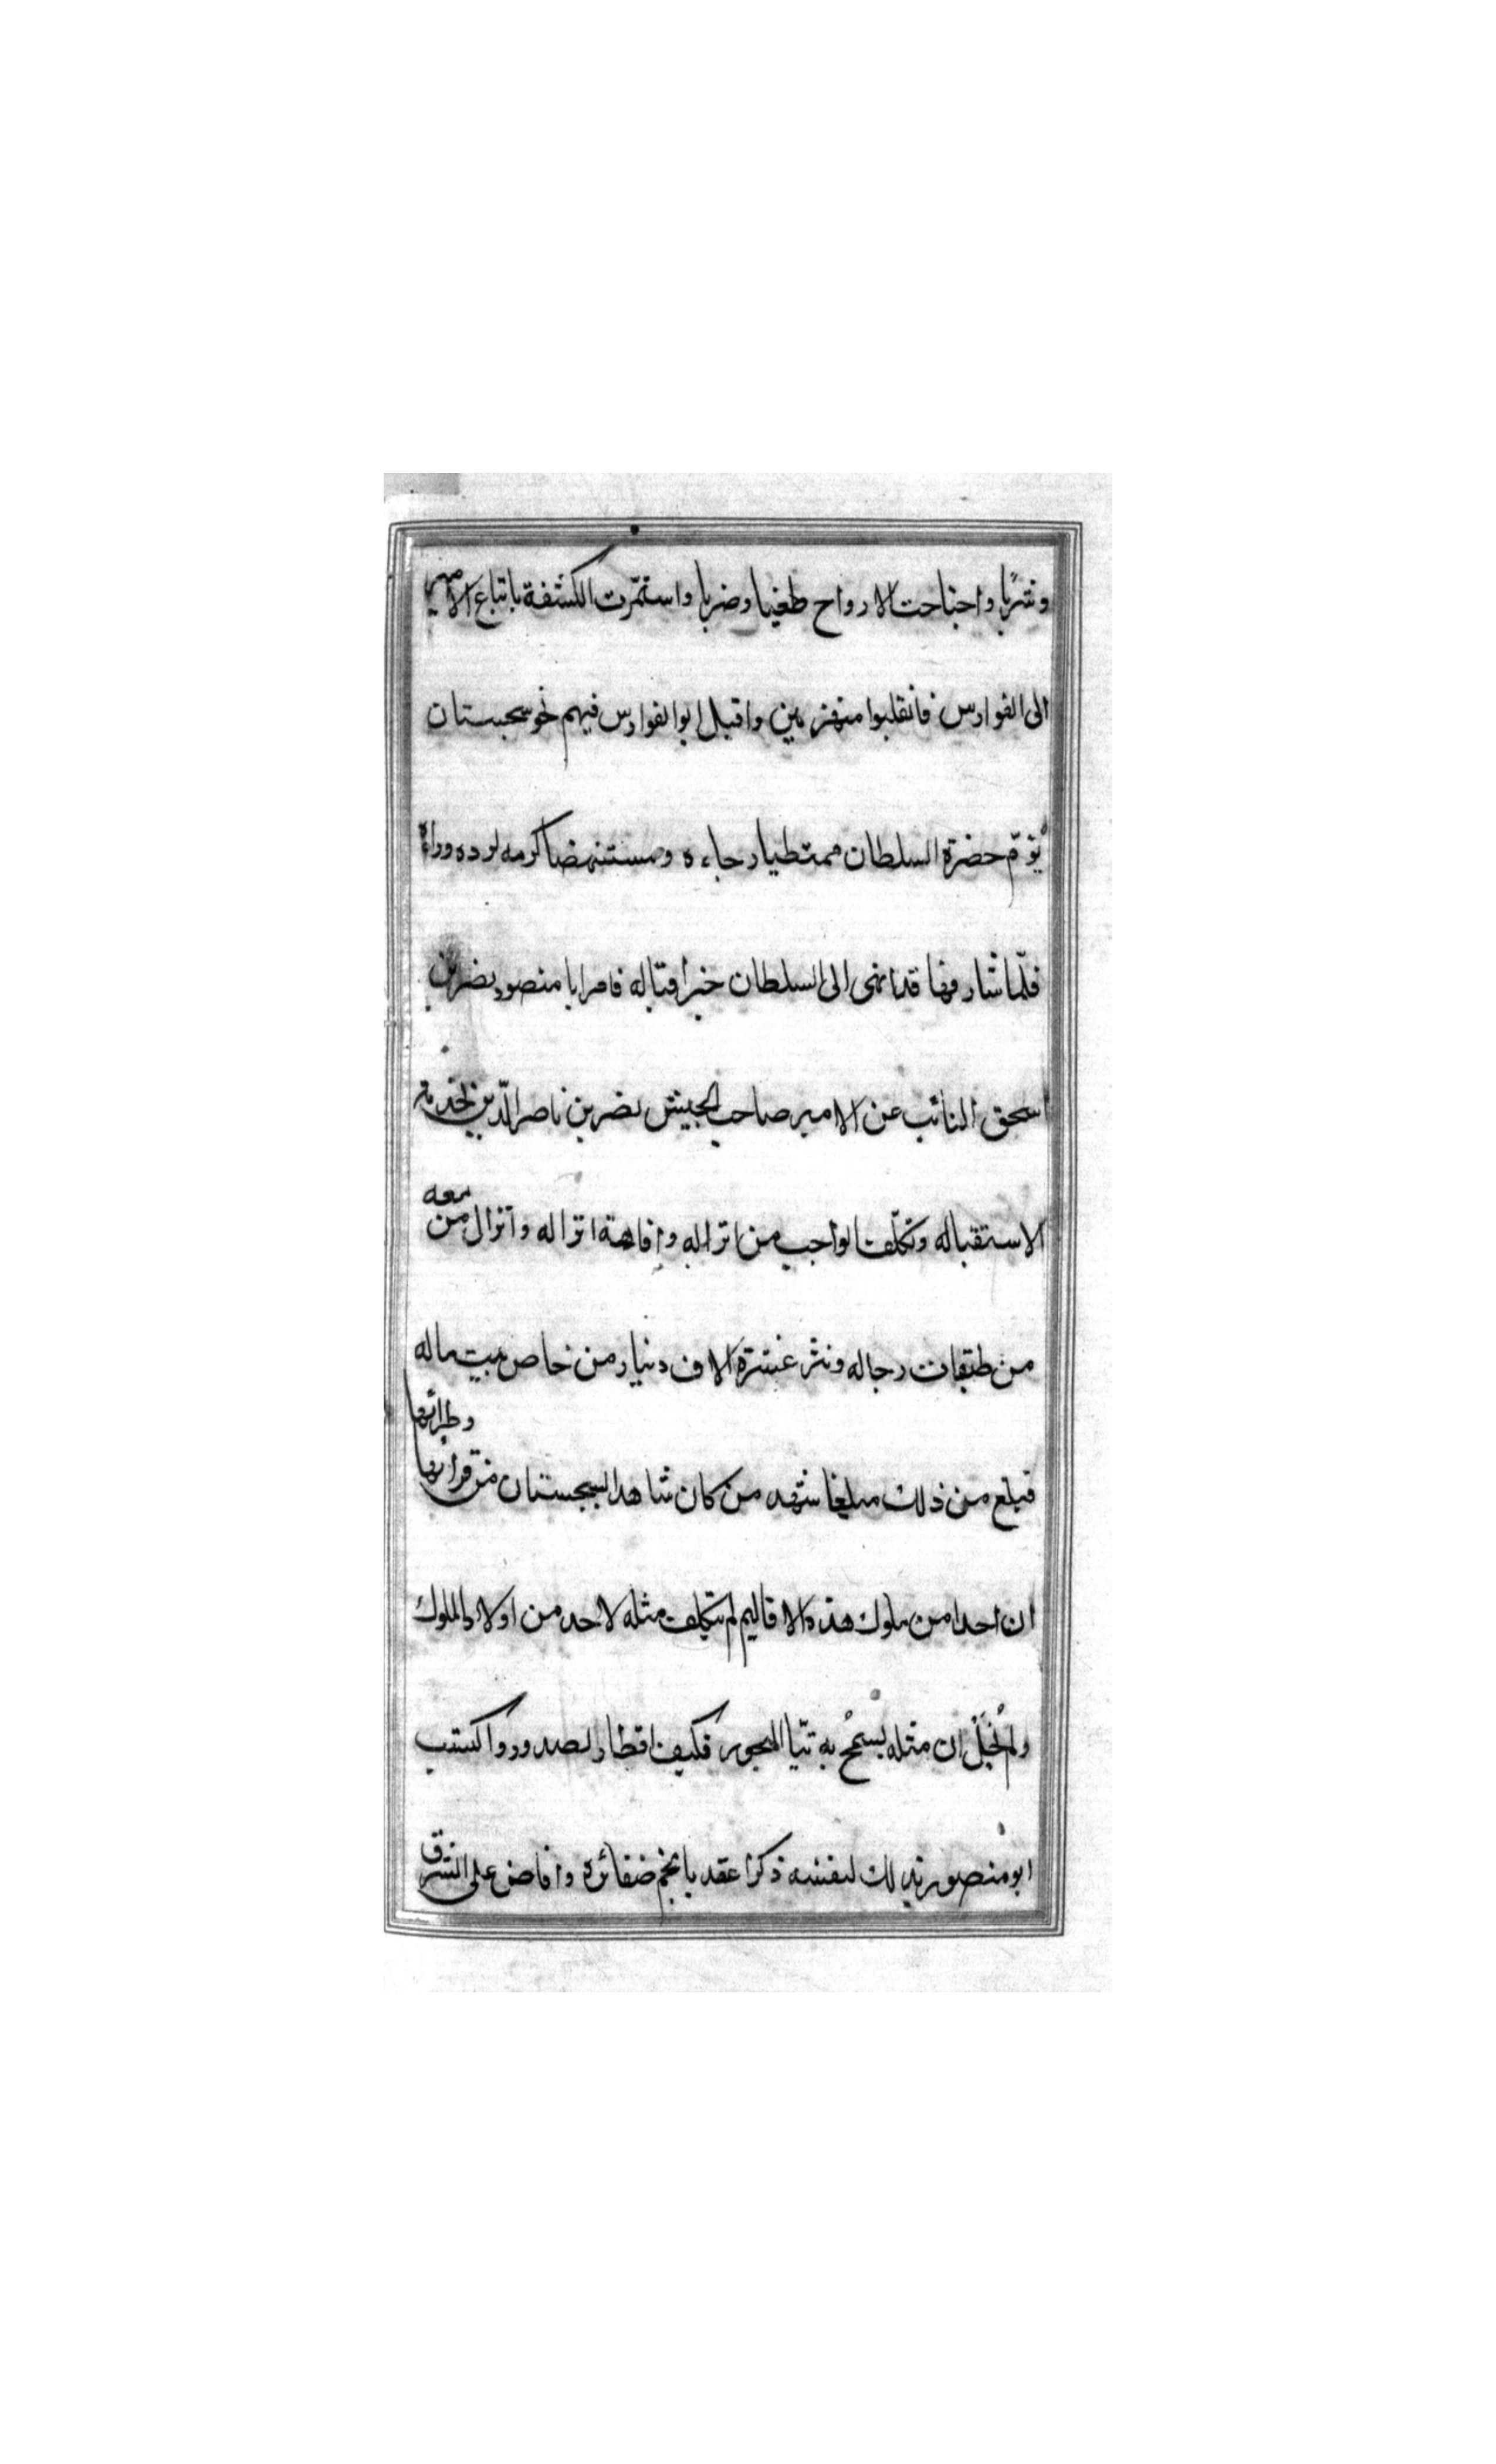 وشربا واجتاحت الارواح طعنا وضربا واستمرت الكشفة باتباع الامير
الى الفوارس فانقلبوا منهزمين واقبل ابو الفوارس فيهم نحو سجستان
يؤم حضرة السلطان ممتطيا رجاءه ومستنهضا كرمه لرده وراءه
فلما شارفها قدانهى الى السلطان خبر اقباله فامر ابا منصور نصر بن
اسحق النائب عن الامير صاحب الجيش نصر بن ناصر الدين بخدمة
الاستقباله وتكلف الواجب من انزاله واقامة انزاله وانزال من معه
من طبقات رجاله ونثر عشرة الاف دينار من خاص بيت ماله
فبلغ من ذلك مبلغا شهد من كان شاهدا بسجستان من قرابها وطرائها
ان احدا من ملوك هذه الاقاليم لم يتكلف مثله لاحد من اولاد الملوك
ولم يخل ان مثله يسمح به تيار البحور فكيف اقطار الصدور واكتسب
ابو منصور بذلك لنفسه ذكرا عقد بالنجم ضفائره وافاض على الشرق